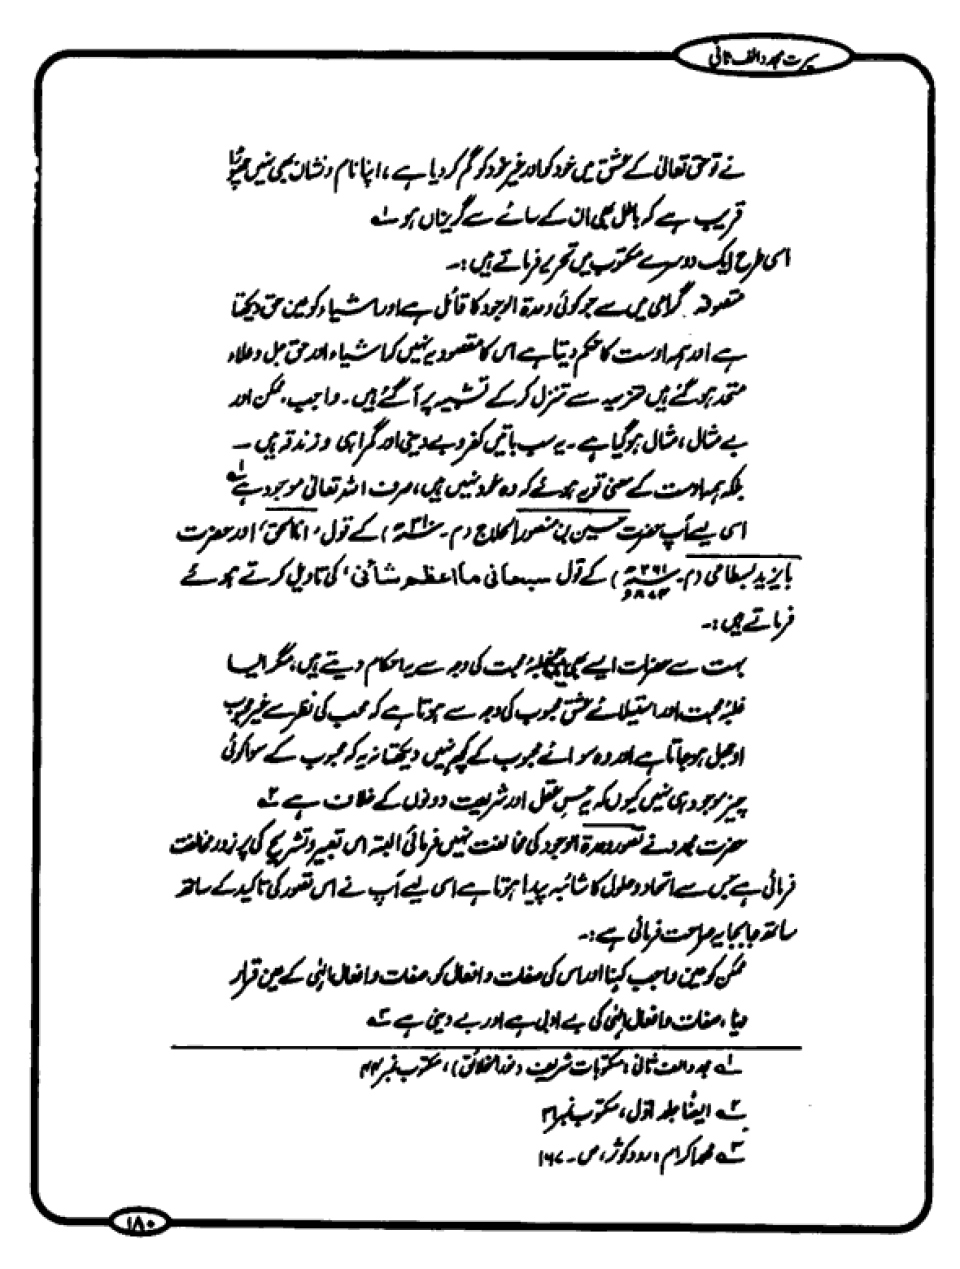 سیرت مجدد الف ثانی
نے تو حق تعالیٰ کے عشق میں خود کو اور غیر خود کو گم کر دیا ہے، اپنا نام و نشان بھی نہیں چھوڑا
قریب ہے کہ باطل بھی ان کے سائے سے گریزاں ہو
اسی طرح ایک دوسرے مکتوب میں تحریر فرماتے ہیں :-
متصوفہ گرامی میں سے جو کوئی وحدۃ الوجود کا قائل ہے اور اشیاء کو عین حق دیکھتا
ہے اور ہمہ اوست کا حکم دیتا ہے اس کا مقصود یہ نہیں کہ اشیاء اور حق جل و علاء
متحد ہو گئے ہیں تنزیہہ سے تنزل کر کے تشبیہہ پر آ گئے ہیں۔ واجب، ممکن اور
بے مثال، مثال ہو گیا ہے۔ یہ سب باتیں کفر و بے دینی اور گمراہی و زندقہ ہیں ۔
بلکہ ہمہ اوست کے معنی تو یہ ہوئے کہ وہ خود نہیں ہیں، صرف اللہ تعالیٰ موجود ہے ۱ے
اسی لیے آپ حضرت حسین بن منصور الحلاج (م۔ ۳۱۰ھ) کے قول، 'انا الحق' اور حضرت
بایزید بسطامی (م۔ ۲۶۱ھ ۸۷۴ء) کے قول سبحانی ما اعظم شانی، کی تاویل کرتے ہوئے
فرماتے ہیں :-
بہت سے حضرات ایسے بھی ہیں جو غلبۂ محبت کی وجہ سے یہ احکام دیتے ہیں، مگر ایسا
غلبۂ محبت اور استیلائے عشق محبوب کی وجہ سے ہوتا ہے کہ محب کی نظر سے غیر محبوب
اوجھل ہو جاتا ہے اور وہ سوائے محبوب کے کچھ نہیں دیکھتا نہ یہ کہ محبوب کے سوا کوئی
چیز موجود ہی نہیں کیوں کہ یہ حس عقل اور شریعت دونوں کے خلاف ہے ۲ے
حضرت مجدد نے تصور وحدۃ الوجود کی مخالفت نہیں فرمائی البتہ اس تعبیر و تشریح کی پر زور مخالفت
فرمائی ہے جس سے اتحاد و حلول کا شائبہ پیدا ہوتا ہے اسی لیے آپ نے اس تصور کی تاکید کے ساتھ
ساتھ جا بجا یہ صراحت فرمائی ہے :-
ممکن کو عین واجب کہنا اور اس کی صفات و افعال کو صفات و افعال الٰہی کے عین قرار
دینا، صفات و افعال الٰہی کی بے ادبی ہے اور بے دینی ہے ۳ے
۱ے مجدد الف ثانی: مکتوبات شریف (نور الخلائق)، مکتوب نمبر ۴۴
۲ے ایضًا جلد اول، مکتوب نمبر
۳ے محمد اکرام: رود کوثر، ص۔ ۱۶۷
۱۸۰